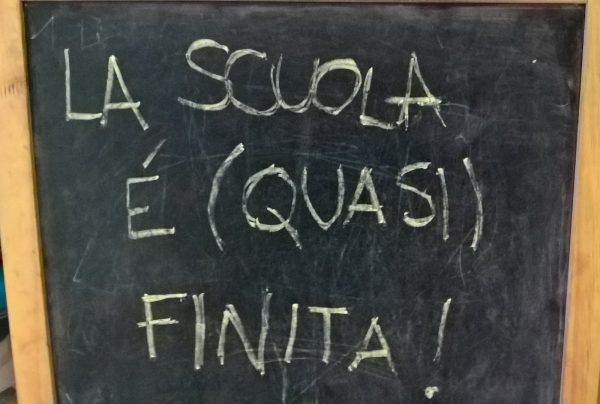 LA SCUOLA
É (QUASI)
FINITA!